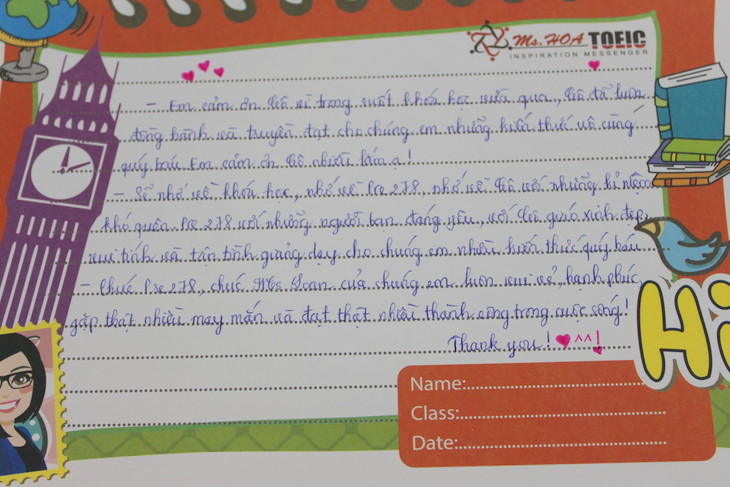 Ms. HOA TOEIC
INSPIRATION MESSENGER
- Em cảm ơn Cô vì trong suốt khóa học vừa qua, Cô đã luôn
đồng hành và truyền đạt cho chúng em những kiến thức vô cùng
quý báu. Em cảm ơn Cô nhiều lắm ạ!
- Sẽ nhớ về khóa học, nhớ về Pre 278, nhớ về Cô với những kỉ niệm
khó quên. Pre 278 với những người bạn đáng yêu, với Cô giáo xinh đẹp,
vui tính và tận tình giảng dạy cho chúng em nhiều kiến thức quý báu
- Chúc Pre 278, chúc Ms Loan của chúng em luôn vui vẻ, hạnh phúc,
gặp thật nhiều may mắn và đạt thật nhiều thành công trong cuộc sống!
Thank you! ^^!
Hi
Name:
Class:
Date: